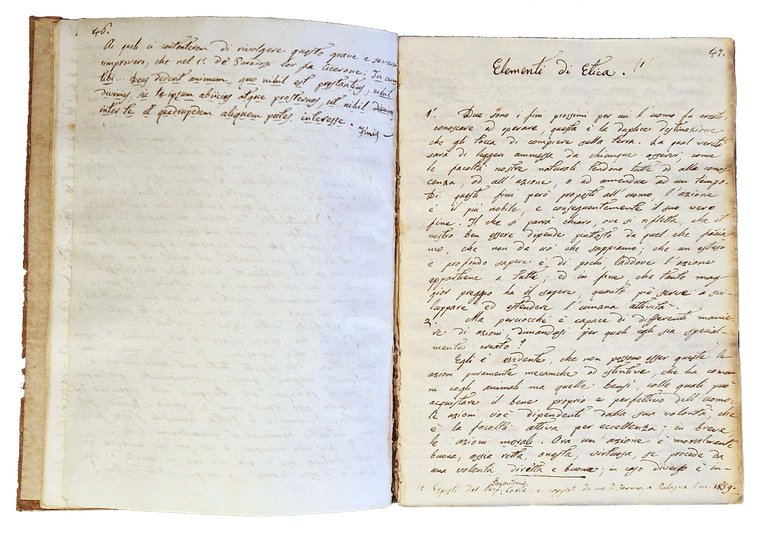 46.
Ai quali ci contenterem di rivolgere questo grave e severo
rimprovero, che nel 1º. de' Paradossi lor fa Cicerone: Tu cum
tibi... Deus dederit animum, quo nihil est praestantius, nihil
divinius, sic te ipsum abiicies atque prosternes, ut nihil divinum
inter te et quadrupedem aliquem putes interesse.
Finis
47.
Elementi di Etica. (1
1. Due sono i fini prossimi per cui l'uomo fu creato
conoscere ed operare, questa è la duplice destinazione
che gli tocca di compiere sulla terra. La qual verità
sarà di leggeri ammessa da chiunque osservi, come
le facoltà nostre naturali tendono tutte od alla conos-
cenza, od all'azione, o ad amendue ad un tempo.
Di questi fini però proposti all'uomo l'azione
è il più nobile, e conseguentemente il suo vero
fine. Il che si parrà chiaro, ove si rifletta che il
nostro ben essere dipende piuttosto da quel che faccia-
mo, che non da ciò che sappiamo; che un esteso
e profondo sapere è di pochi laddove l'azione
appartiene a tutti; ed in fine che tanto mag-
gior pregio ha il sapere, quanto più serve a svi-
luppare ed estendere l'umana attività.
2. Ma perciocchè è capace di differenti manie-
re di azioni, dimandasi per quali egli sia special-
mente creato?
Egli è evidente, che non possono esser queste le
azioni puramente mecaniche ed istintive, che ha comu-
ni cogli animali ma quelle bensì, colle quali può
acquistare il bene proprio e perfettivo dell'uomo;
le azioni cioè dipendenti dalla sua volontà, che
è la facoltà attiva per eccellenza; in breve
le azioni morali. Ora un'azione è moralmente
buona, ossia retta, onesta, virtuosa, se procede da
una volontà diretta e buona; in caso diverso è in-
1. Esposti dal Prof. e da me a Bologna l'an. 1839.